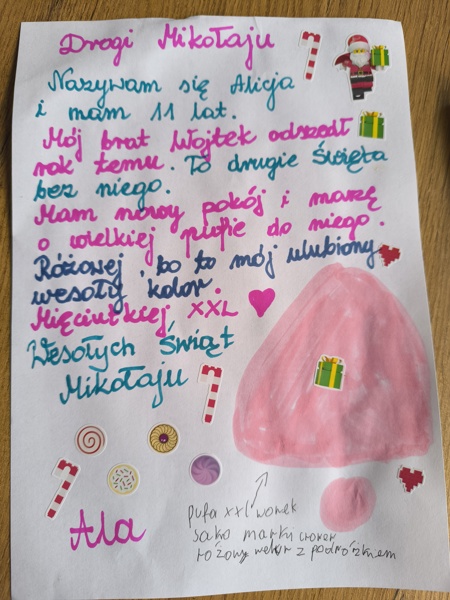 Drogi Mikołaju
Nazywam się Alicja
i mam 11 lat.
Mój brat Wojtek odszedł
rok temu. To drugie Święta
bez niego.
Mam nowy pokój i marzę
o wielkiej pufie do niego.
Różowej, bo to mój ulubiony
wesoły kolor.
Mięciutkiej XXL
Wesołych Świąt
Mikołaju
Ala
pufa xxl worek
sako marki
różowy welur z podnóżkiem